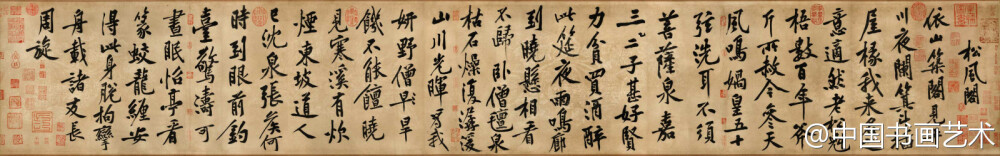 松風閣
依山築閣見平
川夜闌箕斗插
屋椽我來名之
意適然老松魁
梧數百年斧
斤所赦今參天
風鳴媧皇五十
弦洗耳不須
菩薩泉嘉
三二子甚好賢
力貧買酒醉
此筵夜雨鳴廊
到曉懸相看
不歸臥僧氈泉
枯石燥復潺湲
山川光暉為我
妍野僧早旱
饑不能饘曉
見寒溪有炊
煙東坡道人
已沈泉張侯何
時到眼前釣
臺驚濤可
晝眠怡亭看
篆蛟龍纏安
得此身脫拘攣
舟載諸友長
周旋
@中国书画艺术